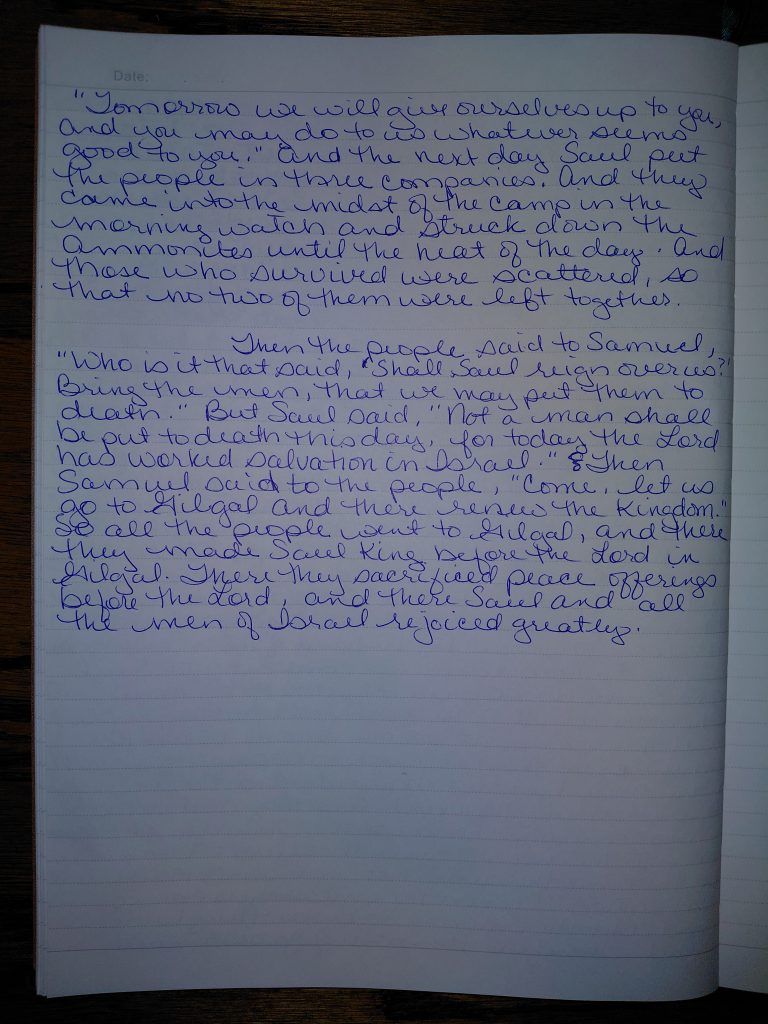 Date:
"Tomorrow we will give ourselves up to you,
and you may do to us whatever seems
good to you." And the next day Saul put
the people in three companies. And they
came into the midst of the camp in the
morning watch and struck down the
Ammonites until the heat of the day. And
those who survived were scattered, so
that no two of them were left together.
Then the people said to Samuel,
"Who is it that said, 'Shall Saul reign over us?'
Bring the men, that we may put them to
death." But Saul said, "Not a man shall
be put to death this day, for today the Lord
has worked salvation in Israel." Then
Samuel said to the people, "Come, let us
go to Gilgal and there renew the Kingdom."
So all the people went to Gilgal, and there
they made Saul King before the Lord in
Gilgal. There they sacrificed peace offerings
before the Lord, and there Saul and all
the men of Israel rejoiced greatly.